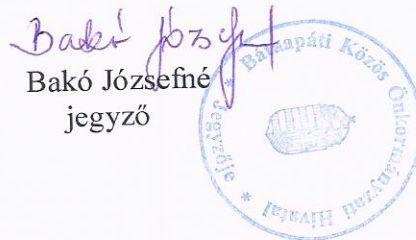 Bakó Józsefné
Bakó Józsefné
jegyző
Bátaapáti Közös Önkormányzati Hivatal * Jegyzője *